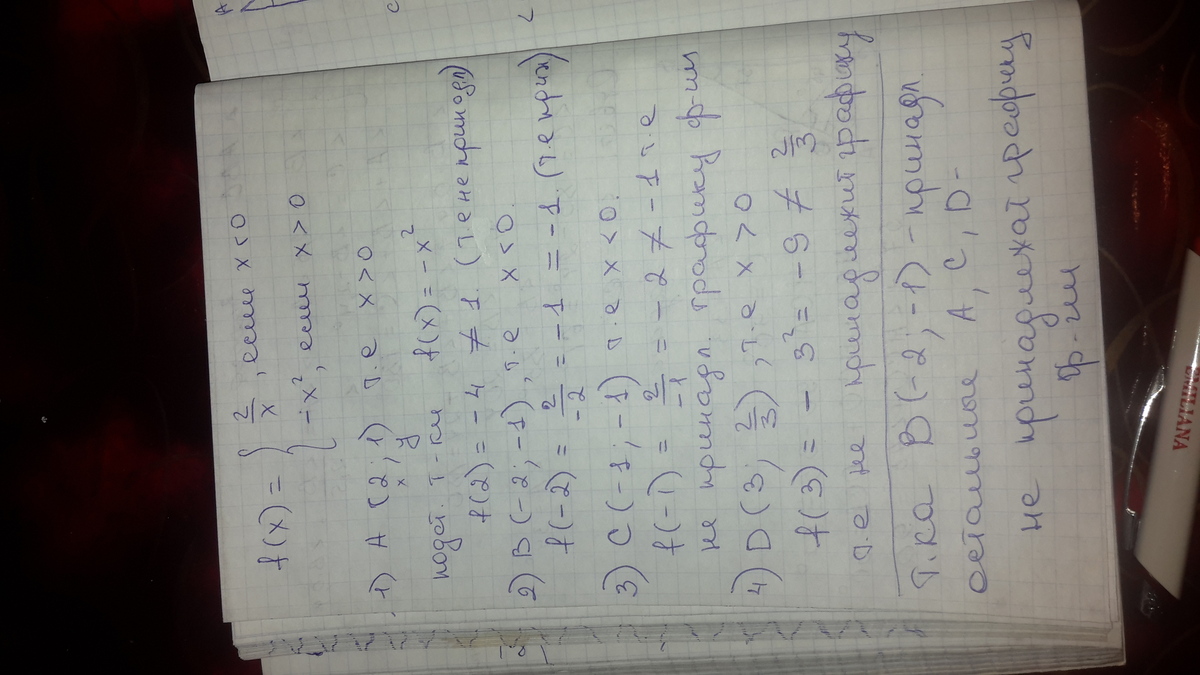 f(x) = { 2/x, если x < 0
-x², если x > 0
1) A (2; 1) т.е x > 0
x y
подст. т-ки f(x) = -x²
f(2) = -4 ≠ 1. (т.е не принадл)
2) B (-2; -1), т.е x < 0.
f(-2) = 2/-2 = -1 = -1. (т.е прин)
3) C (-1; -1) т.е x < 0.
f(-1) = 2/-1 = -2 ≠ -1 т.е
не принадл. графику ф-ии
4) D (3; 2/3), т.е x > 0
f(3) = -3² = -9 ≠ 2/3
т.е не принадлежит графику
Т.ка B (-2; -1) - принадл.
остальные A, C, D -
не принадлежат графику
ф-ии